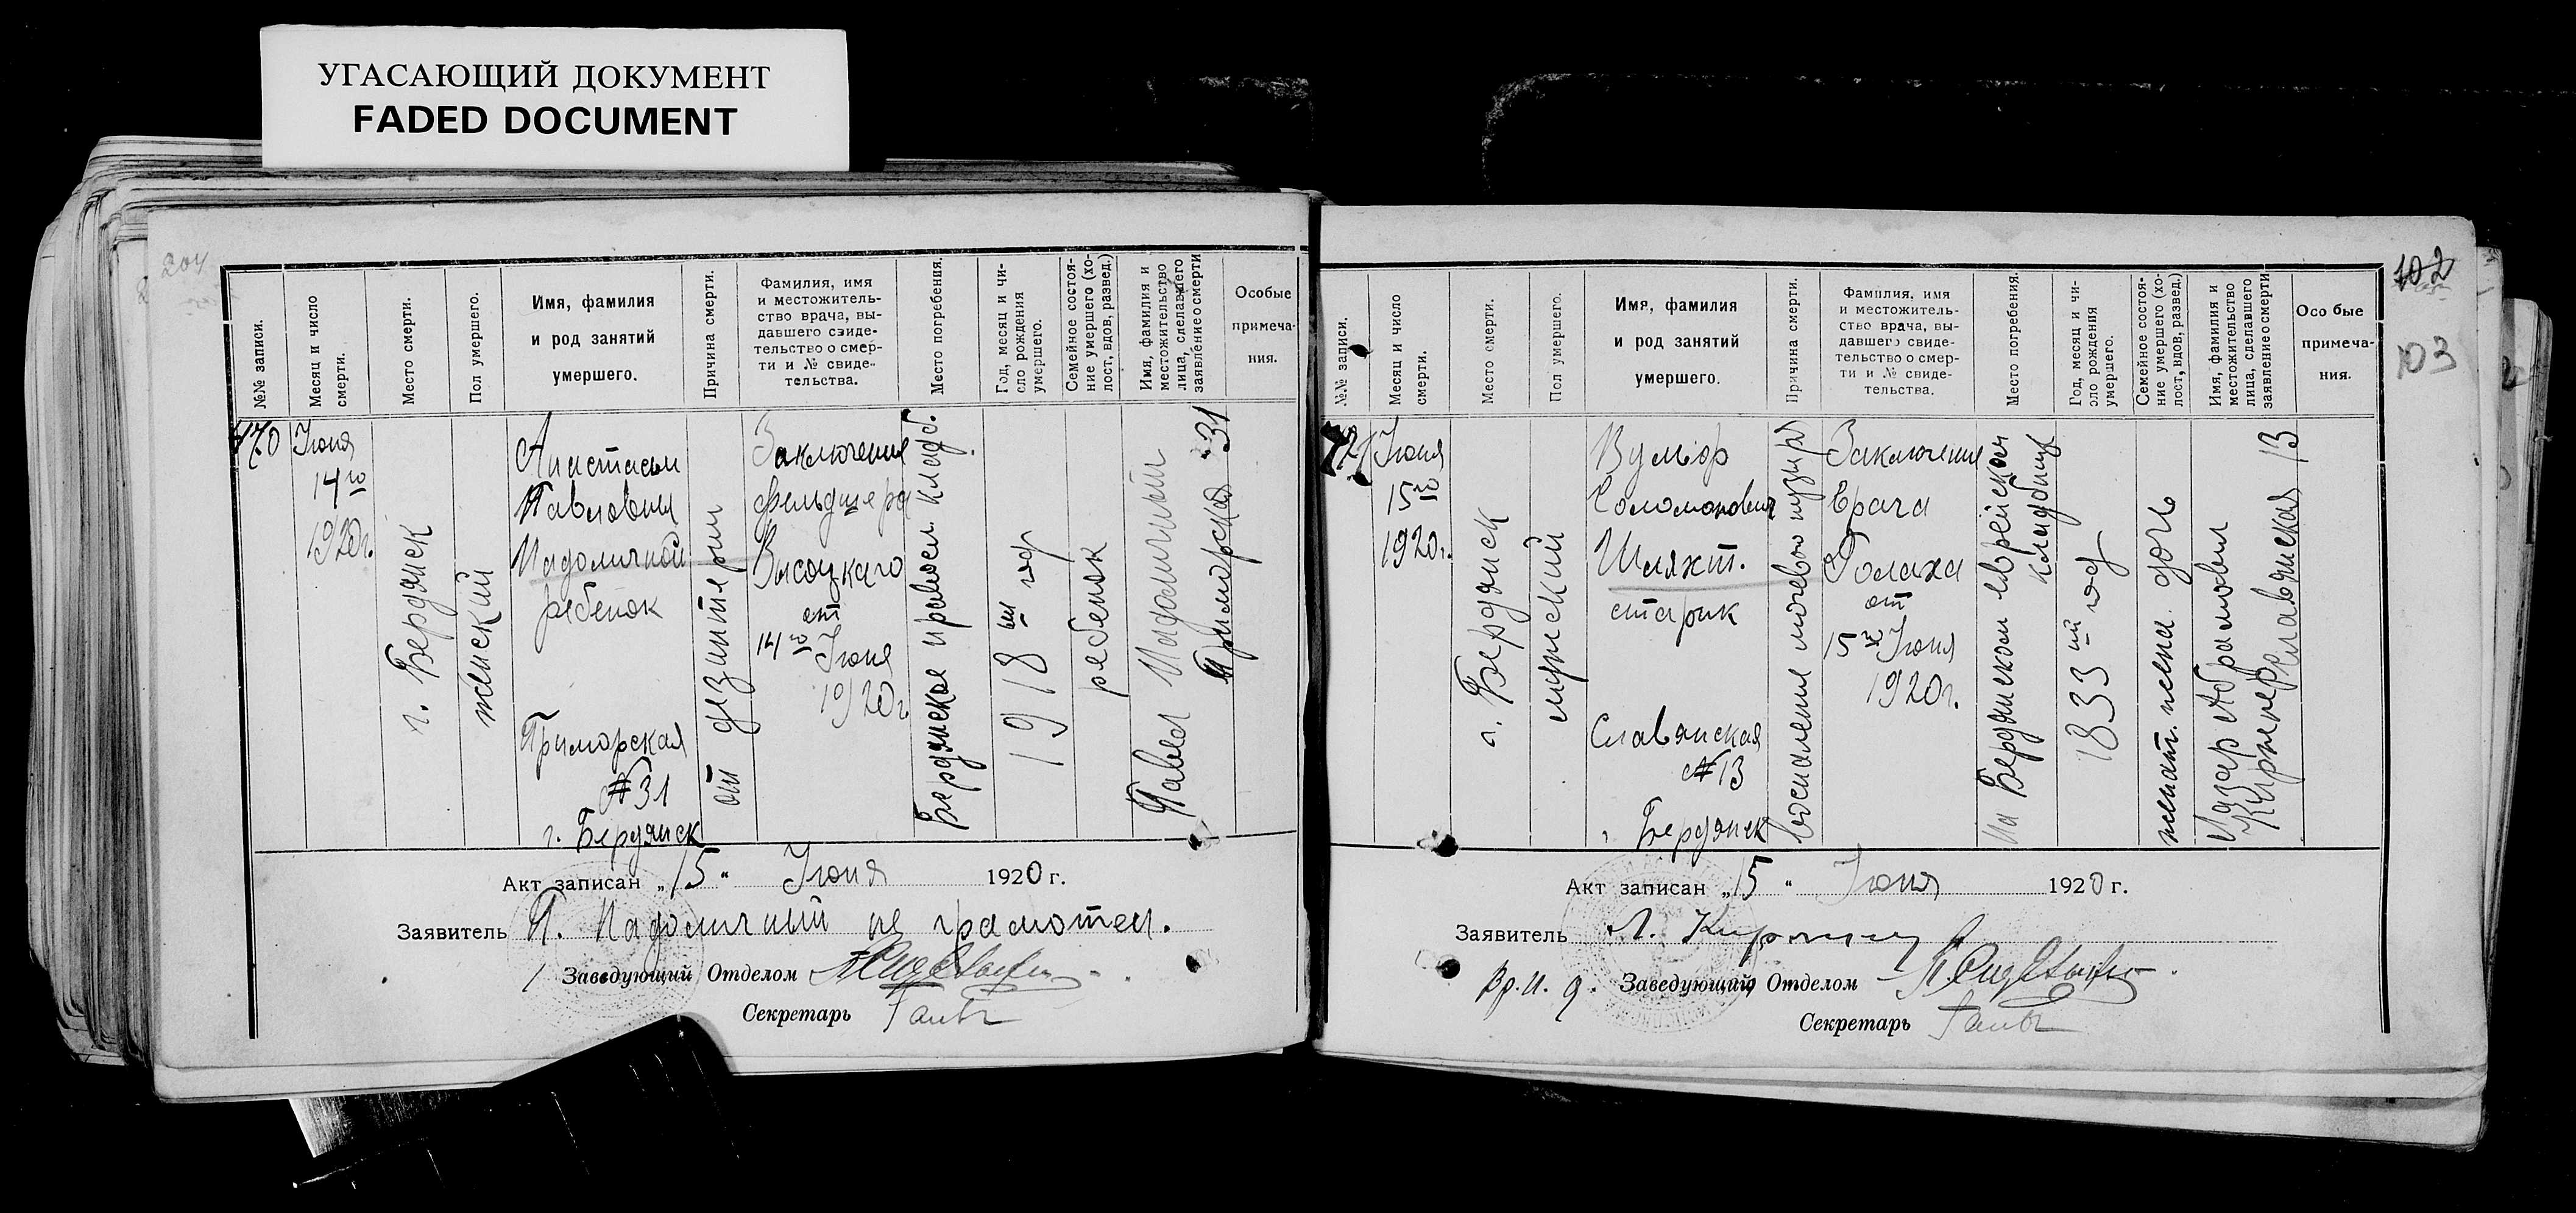 УГАСАЮЩИЙ ДОКУМЕНТ
FADED DOCUMENT
204
№№ записи.
Месяц и число
смерти.
Место смерти.
Пол умершего.
Имя, фамилия
и род занятий
умершего.
Причина смерти.
Фамилия, имя
и местожитель-
ство врача, вы-
давшего свиде-
тельство о смер-
ти и № свиде-
тельства.
Место погребения.
Год, месяц и чи-
сло рождения
умершего.
Семейное состоя-
ние умершего (хо-
лост, вдов, развед.)
Имя, фамилия и
местожительство
лица, сделавшего
заявление о смерти
Особые
примеча-
ния.
170
Июня
14го
1920г.
г. Бердянск
женский
Анастасия
Павловна
Надоличной
ребенок
Приморская
№31
г. Бердянск
от дизинтерии
Заключения
фельдшера
Высоцкаго
от
14го Июня
1920г.
Бердянское правосл. кладб.
1918 год
ребенок
Павел Надоличный
Приморская 31
Акт записан „15" Июня 1920 г.
Заявитель П. Надоличный не грамотен.
Заведующий Отделом
Секретарь
102
103
№№ записи.
Месяц и число
смерти.
Место смерти.
Пол умершего.
Имя, фамилия
и род занятий
умершего.
Причина смерти.
Фамилия, имя
и местожитель-
ство врача, вы-
давшего свиде-
тельство о смер-
ти и № свиде-
тельства.
Место погребения.
Год, месяц и чи-
сло рождения
умершего.
Семейное состоя-
ние умершего (хо-
лост, вдов, развед.)
Имя, фамилия и
местожительство
лица, сделавшего
заявление о смерти
Осо бые
примеча-
ния.
171
Июня
15го
1920г.
г. Бердянск
мужский
Вульф
Соломонович
Шляхт.
старик
Славянская
№13
г. Бердянск
воспаления мочевого пузыря
Заключение
врача
от
15го Июня
1920г.
На Бердянском еврейском
кладбище
1833 ий год
женат.
Лазар Абрамович
Киржнер
Славянская 13
Акт записан „15" Июня 1920 г.
Заявитель Л.
Вр. И. д. Заведующий Отделом
Секретарь